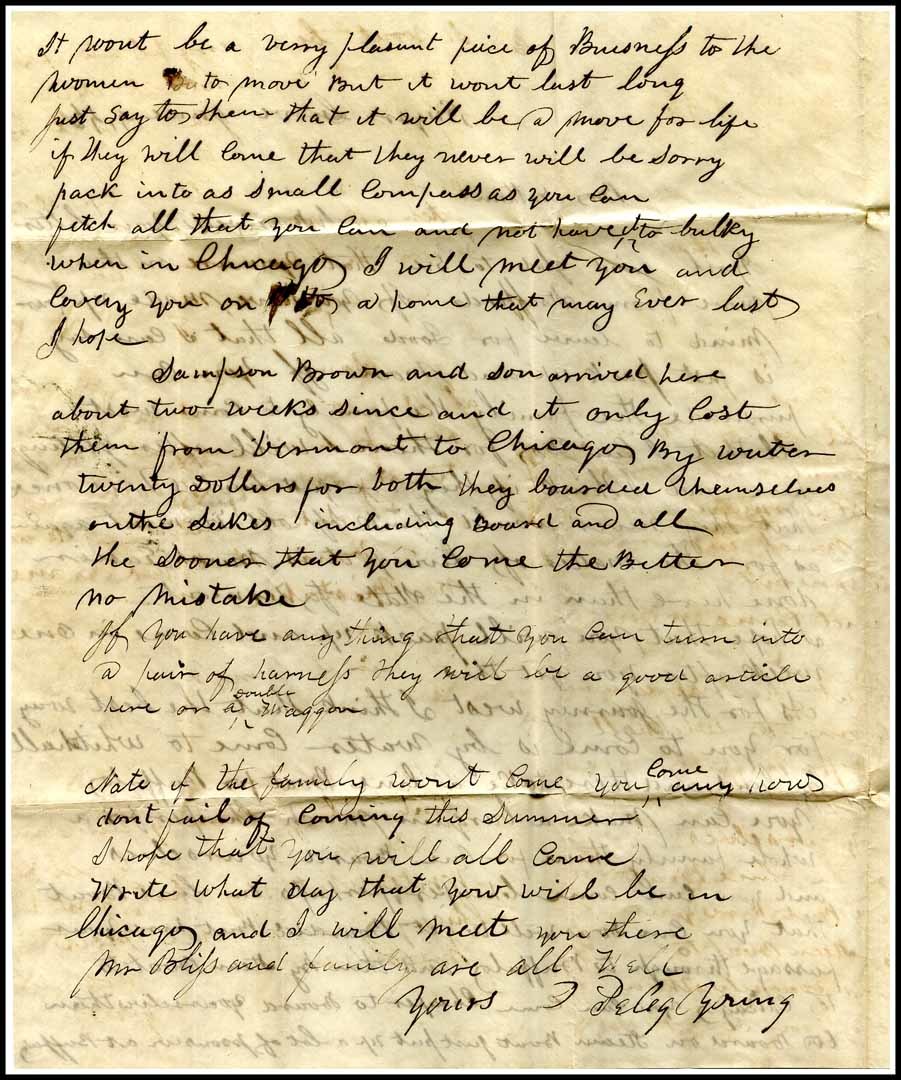 It wont be a verry plasant pice of Buesness to the
women to move But it wont last long
just say to them that it will be a move for life
if they will Come that they never will be Sorry
pack into as Small Compass as you Can
fetch all that you Can and not have it to bulky
when in Chicago I will meet you and
Convey you on to a home that may Ever last
I hope
Sampson Brown and Son arrived here
about two weeks since and it only Cost
them from Vermont to Chicago By water
twenty Dollars for both they boarded themselves
on the Lakes including Board and all
the Sooner that you Come the Better
no Mistake
If you have any thing that you Can turn into
a pair of harness they will be a good article
here or a double Waggon
Note if the family wont Come you Come any how
dont fail of Coming this Summer
I hope that you will all Come
Write what day that you will be in
Chicago and I will meet you there
Mr Bliss and family are all Well
Yours Peleg Young